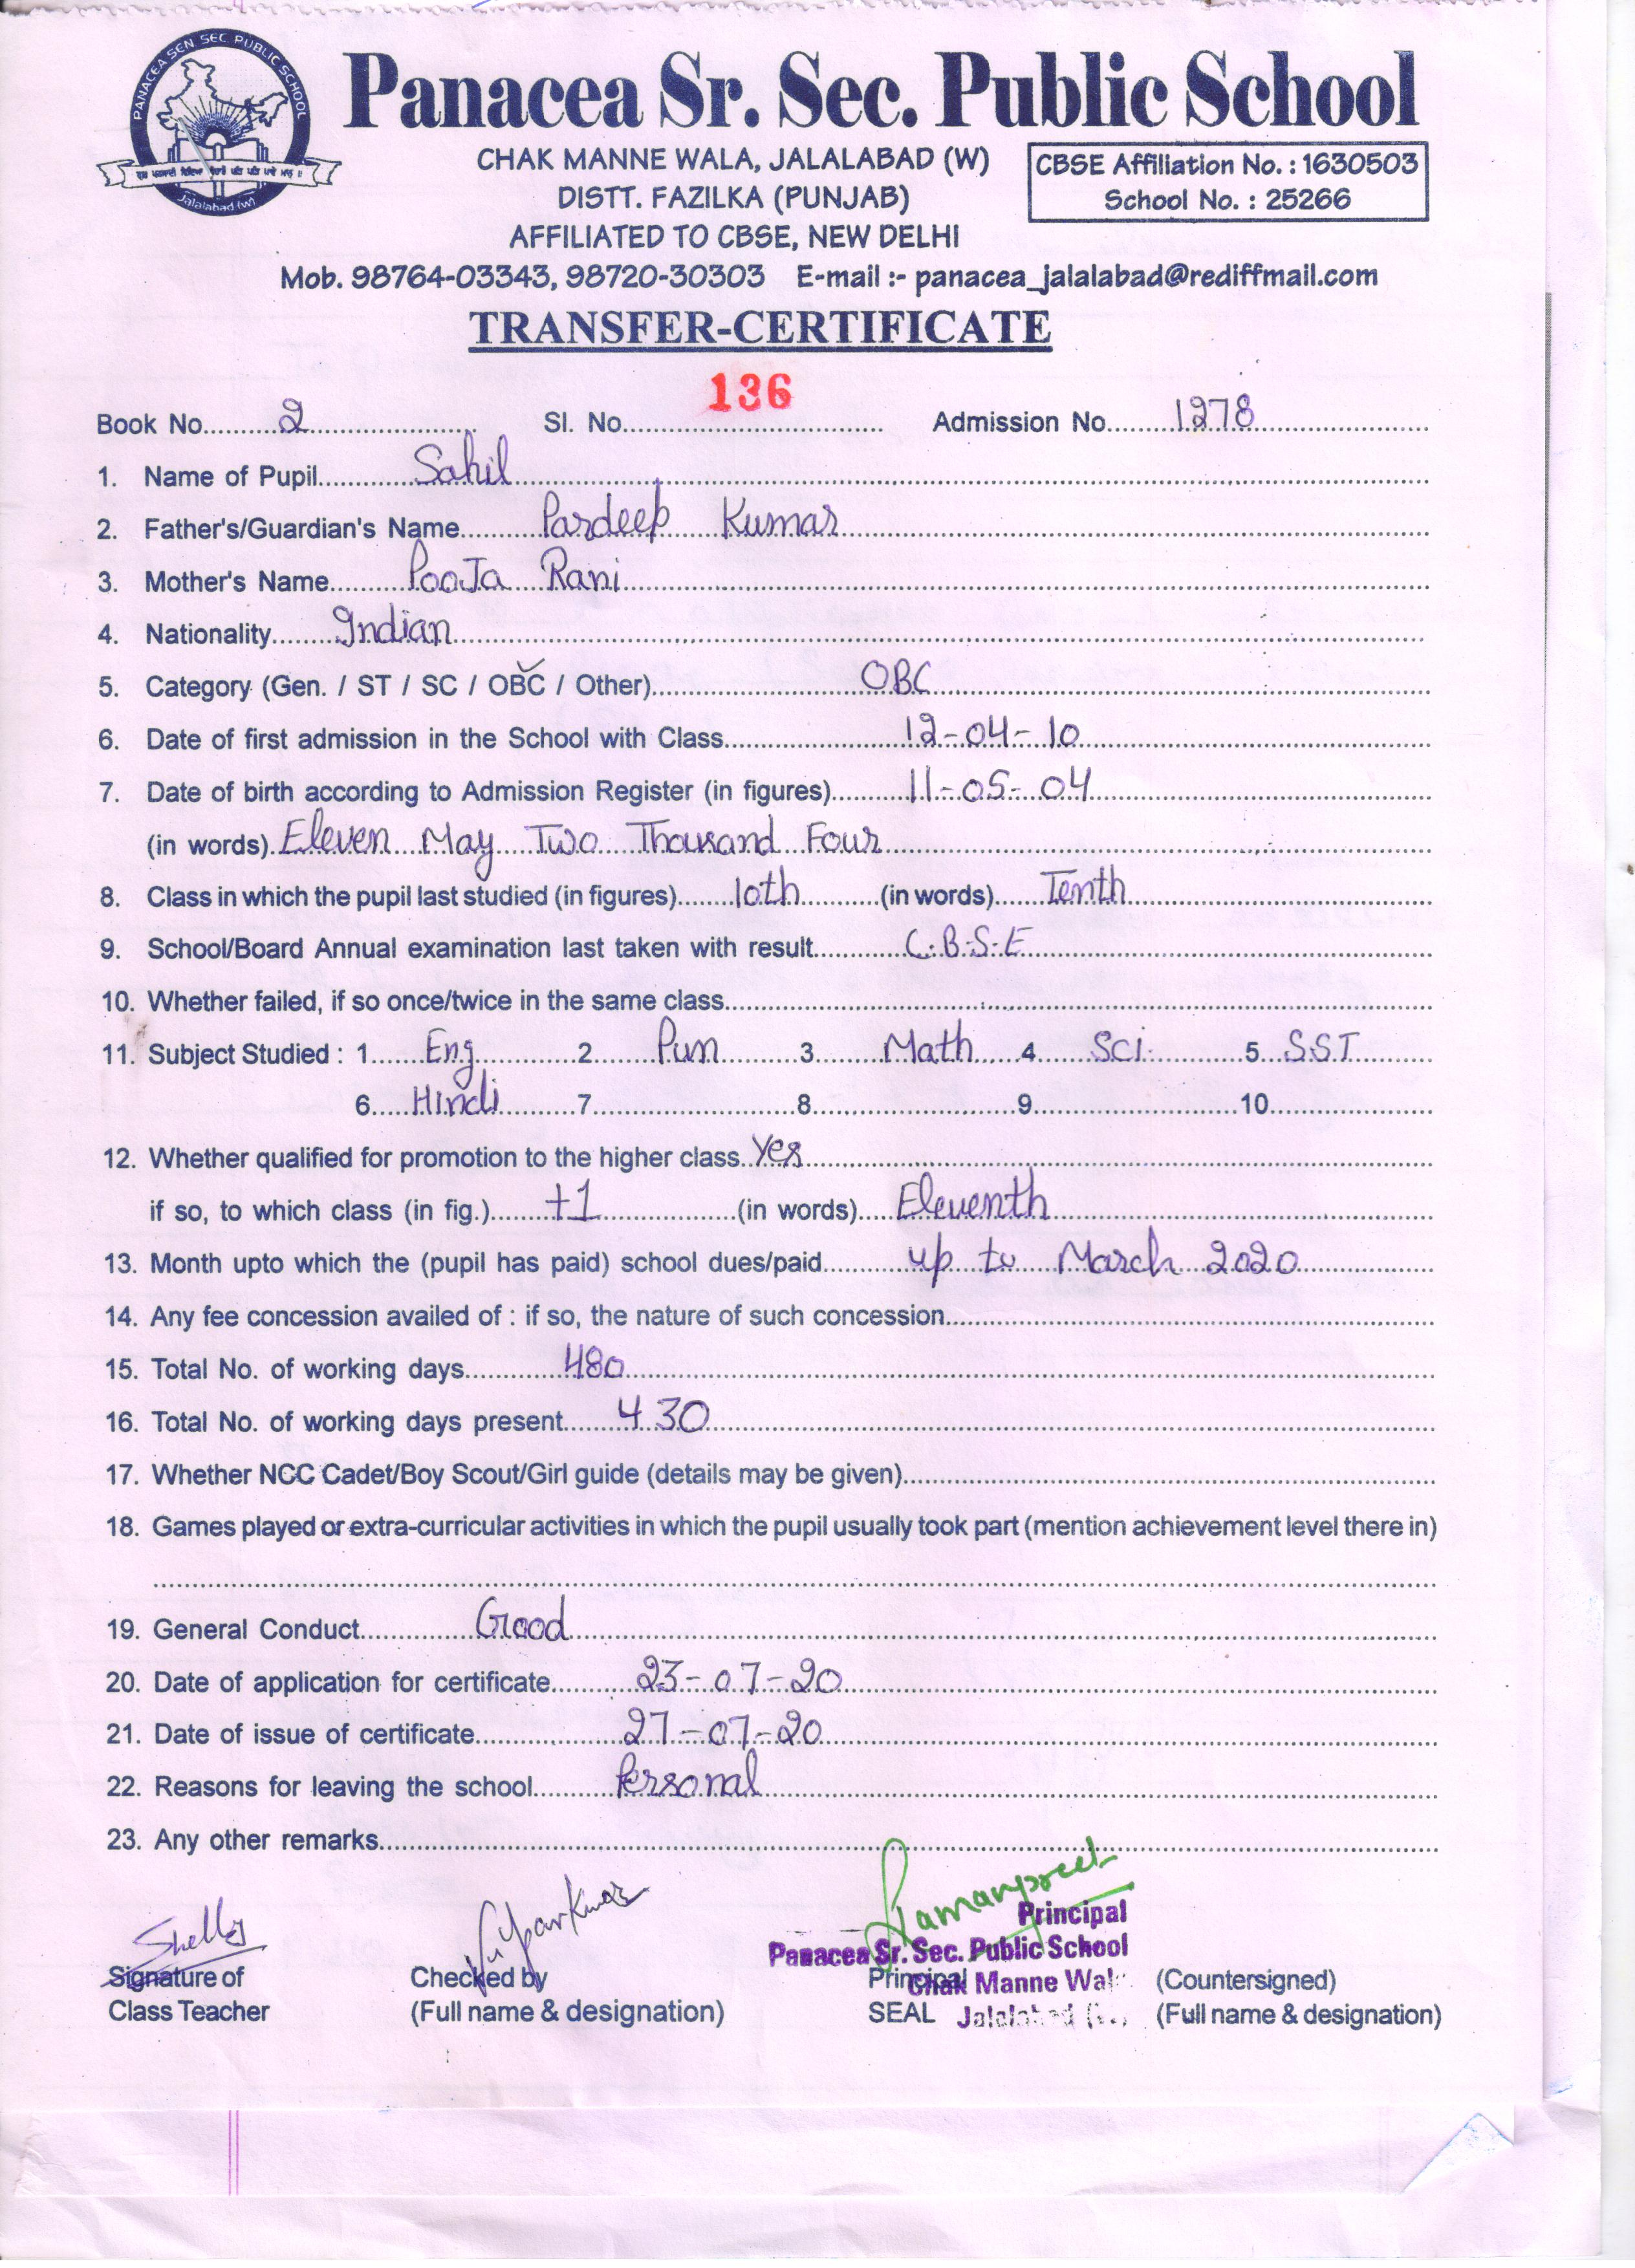 PANACEA SEN. SEC. PUBLIC SCHOOL
Jalalabad (w)
Panacea Sr. Sec. Public School
CHAK MANNE WALA, JALALABAD (W)
DISTT. FAZILKA (PUNJAB)
AFFILIATED TO CBSE, NEW DELHI
CBSE Affiliation No. : 1630503
School No. : 25266
Mob. 98764-03343, 98720-30303 E-mail :- panacea_jalalabad@rediffmail.com
TRANSFER-CERTIFICATE
Book No. 2 Sl. No. 136 Admission No. 1278
1. Name of Pupil Sahil
2. Father's/Guardian's Name Pardeep Kumar
3. Mother's Name PooJa Rani
4. Nationality Indian
5. Category (Gen. / ST / SC / OBC / Other) OBC
6. Date of first admission in the School with Class 12-04-10
7. Date of birth according to Admission Register (in figures) 11-05-04
(in words) Eleven May Two Thousand Four
8. Class in which the pupil last studied (in figures) 10th (in words) Tenth
9. School/Board Annual examination last taken with result C.B.S.E
10. Whether failed, if so once/twice in the same class
11. Subject Studied : 1 Eng 2 Pun 3 Math 4 Sci 5 SST
6 Hindi 7 8 9 10
12. Whether qualified for promotion to the higher class Yes
if so, to which class (in fig.) +1 (in words) Eleventh
13. Month upto which the (pupil has paid) school dues/paid up to March 2020
14. Any fee concession availed of : if so, the nature of such concession
15. Total No. of working days 480
16. Total No. of working days present 430
17. Whether NCC Cadet/Boy Scout/Girl guide (details may be given)
18. Games played or extra-curricular activities in which the pupil usually took part (mention achievement level there in)
19. General Conduct Good
20. Date of application for certificate 23-07-20
21. Date of issue of certificate 27-07-20
22. Reasons for leaving the school Personal
23. Any other remarks
Shelly
Ramanpreet
Principal
Panacea Sr. Sec. Public School
Chak Manne Wala
Jalalabad
Signature of Checked by Principal (Countersigned)
Class Teacher (Full name & designation) SEAL (Full name & designation)